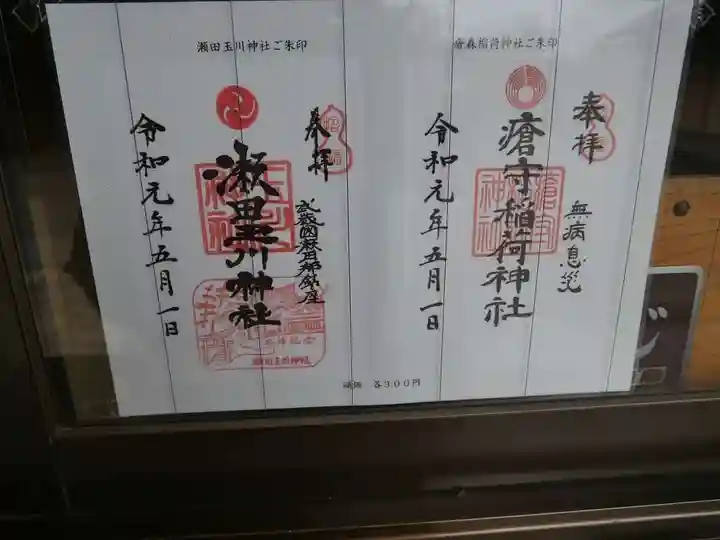 瘡守稲荷神社ご朱印
奉拝
無病息災
瘡守稲荷神社
令和元年五月一日
瀬田玉川神社ご朱印
奉拝
武蔵国荏原郡鎮座
瀬田玉川神社
令和元年五月一日
瀬田玉川神社
頒価 各300円